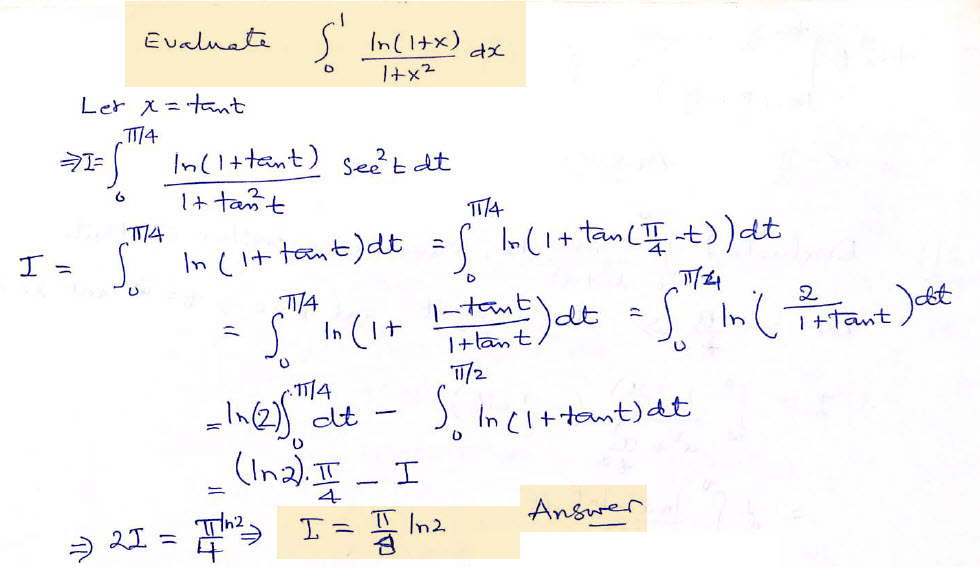 Evaluate ∫₀¹ ln(1+x)/(1+x²) dx
Let x = tant
⇒ I = ∫₀^(π/4) ln(1+tant)/(1+tan²t) sec²t dt
I = ∫₀^(π/4) ln(1+tant)dt = ∫₀^(π/4) ln(1+tan(π/4-t))dt
= ∫₀^(π/4) ln(1+ (1-tant)/(1+tant))dt = ∫₀^(π/4) ln(2/(1+Tant))dt
= ln(2)∫₀^(π/4) dt - ∫₀^(π/2) ln(1+tant)dt
= (ln2).π/4 - I
⇒ 2I = πln2/4 ⇒ I = π/8 ln2 Answer